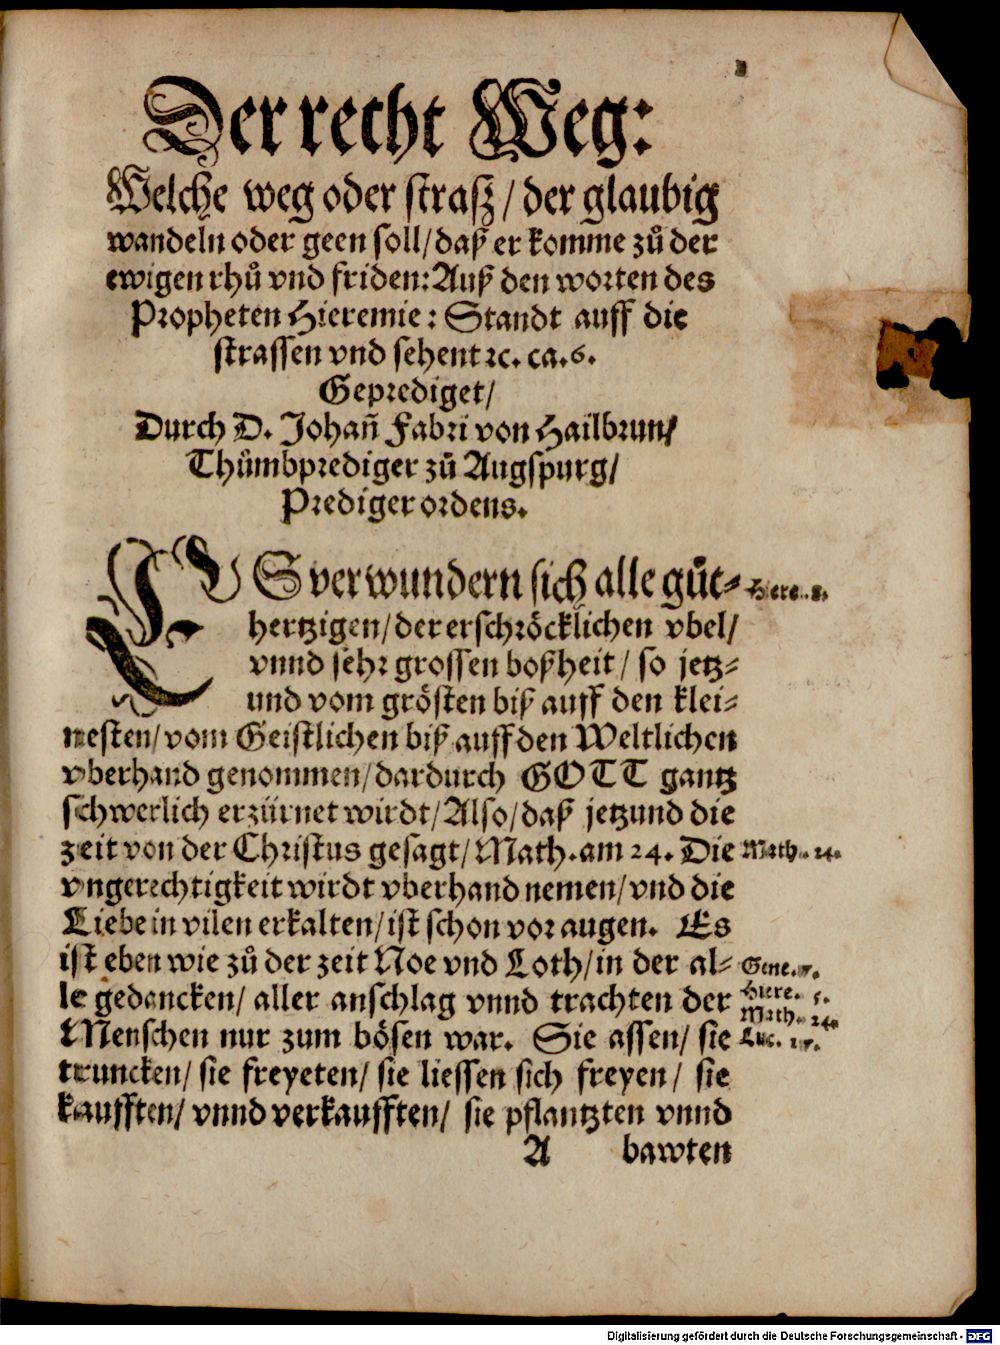 Der recht Weg:
Welche weg oder straß / der glaubig
wandeln oder geen soll/daß er komme zů der
ewigen rhů vnd friden: Auß den worten des
Propheten Hieremie: Standt auff die
strassen vnd sehent ꝛc. ca. 6.
Geprediget/
Durch D. Johañ Fabri von Hailbrun/
Thůmbprediger zů Augspurg/
Prediger ordens.
ES verwundern sich alle gůt-
Hiere. 8.
hertzigen/der erschröcklichen vbel/
vnnd sehr grossen boßheit/ so jetz-
und vom grösten biß auff den klei-
nesten/vom Geistlichen biß auff den Weltlichen
vberhand genommen/dardurch GOTT gantz
schwerlich erzürnet wirdt/Also/daß jetzund die
zeit von der Christus gesagt/Math. am 24. Die
Math. 24.
vngerechtigkeit wirdt vberhand nemen/vnd die
Liebe in vilen erkalten/ist schon vor augen. Es
ist eben wie zů der zeit Noe vnd Loth/in der al-
Gene.
le gedancken/ aller anschlag vnnd trachten der
Hiere. 5.
Math. 24.
Menschen nur zum bösen war. Sie assen/ sie
Luc. 17.
truncken/ sie freyeten/ sie liessen sich freyen/ sie
kaufften/ vnnd verkaufften/ sie pflantzten vnnd
A bawten
Digitalisierung gefördert durch die Deutsche Forschungsgemeinschaft - DFG